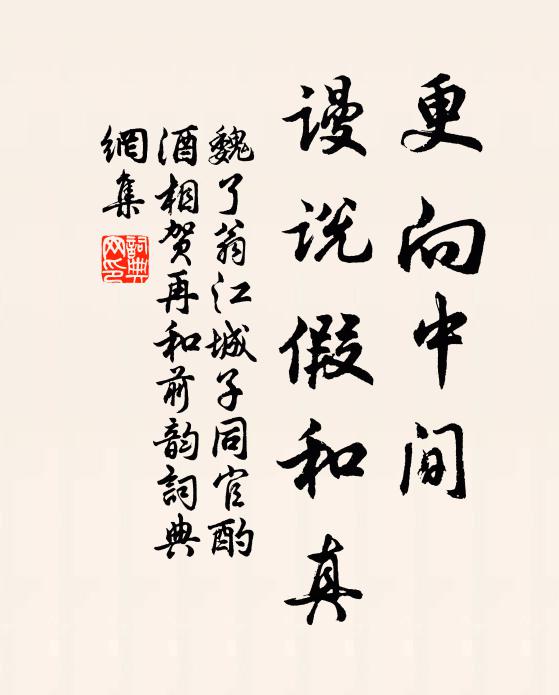 更向中间
谩说假和真
魏了翁江城子同官酌
酒相贺再和前韵词典
網集
詞典網印